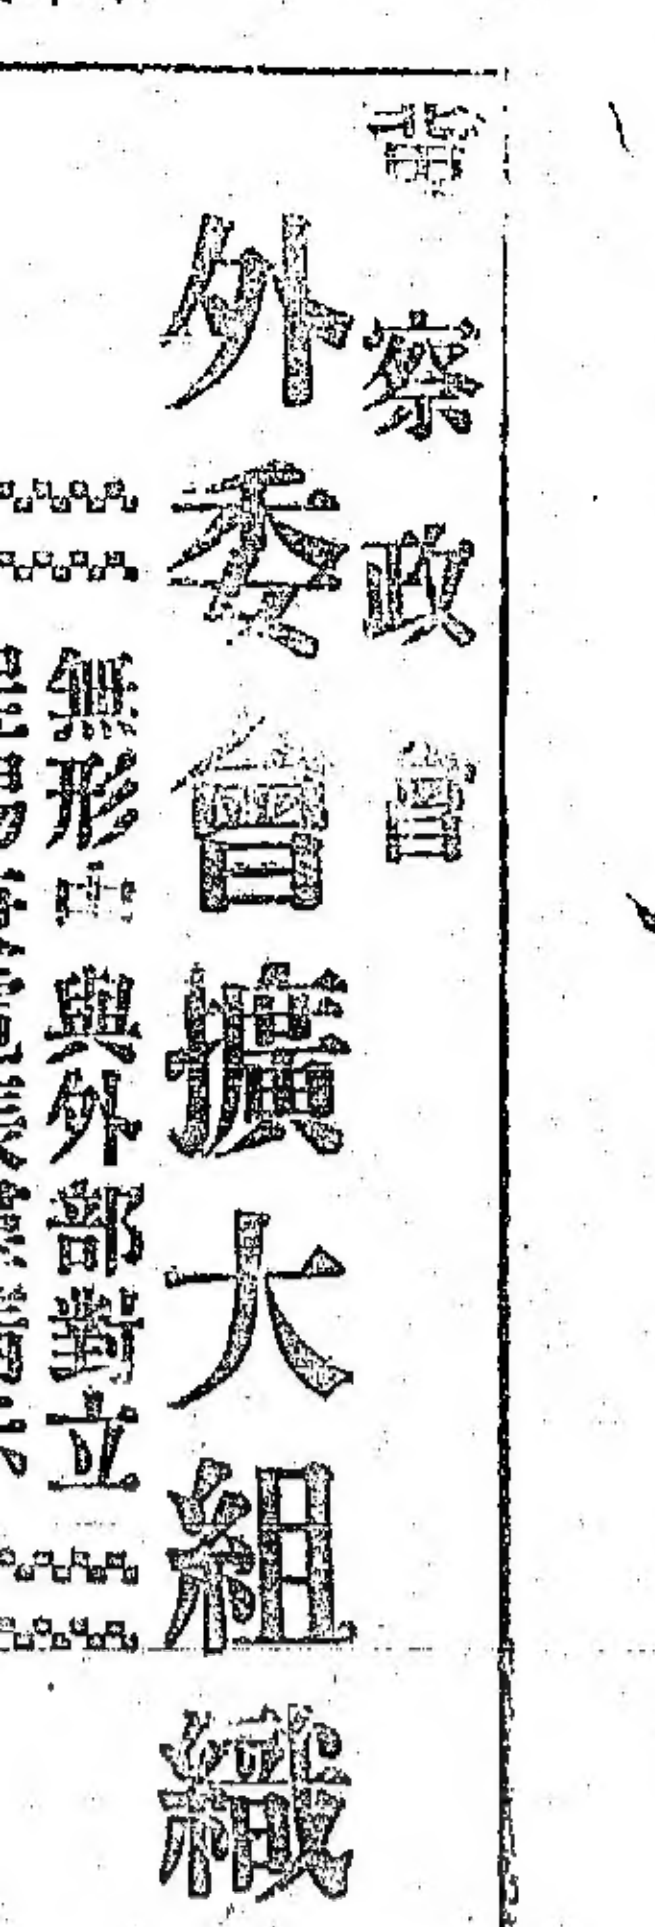 察政會
外委會擴大組織
無形中與外部對立